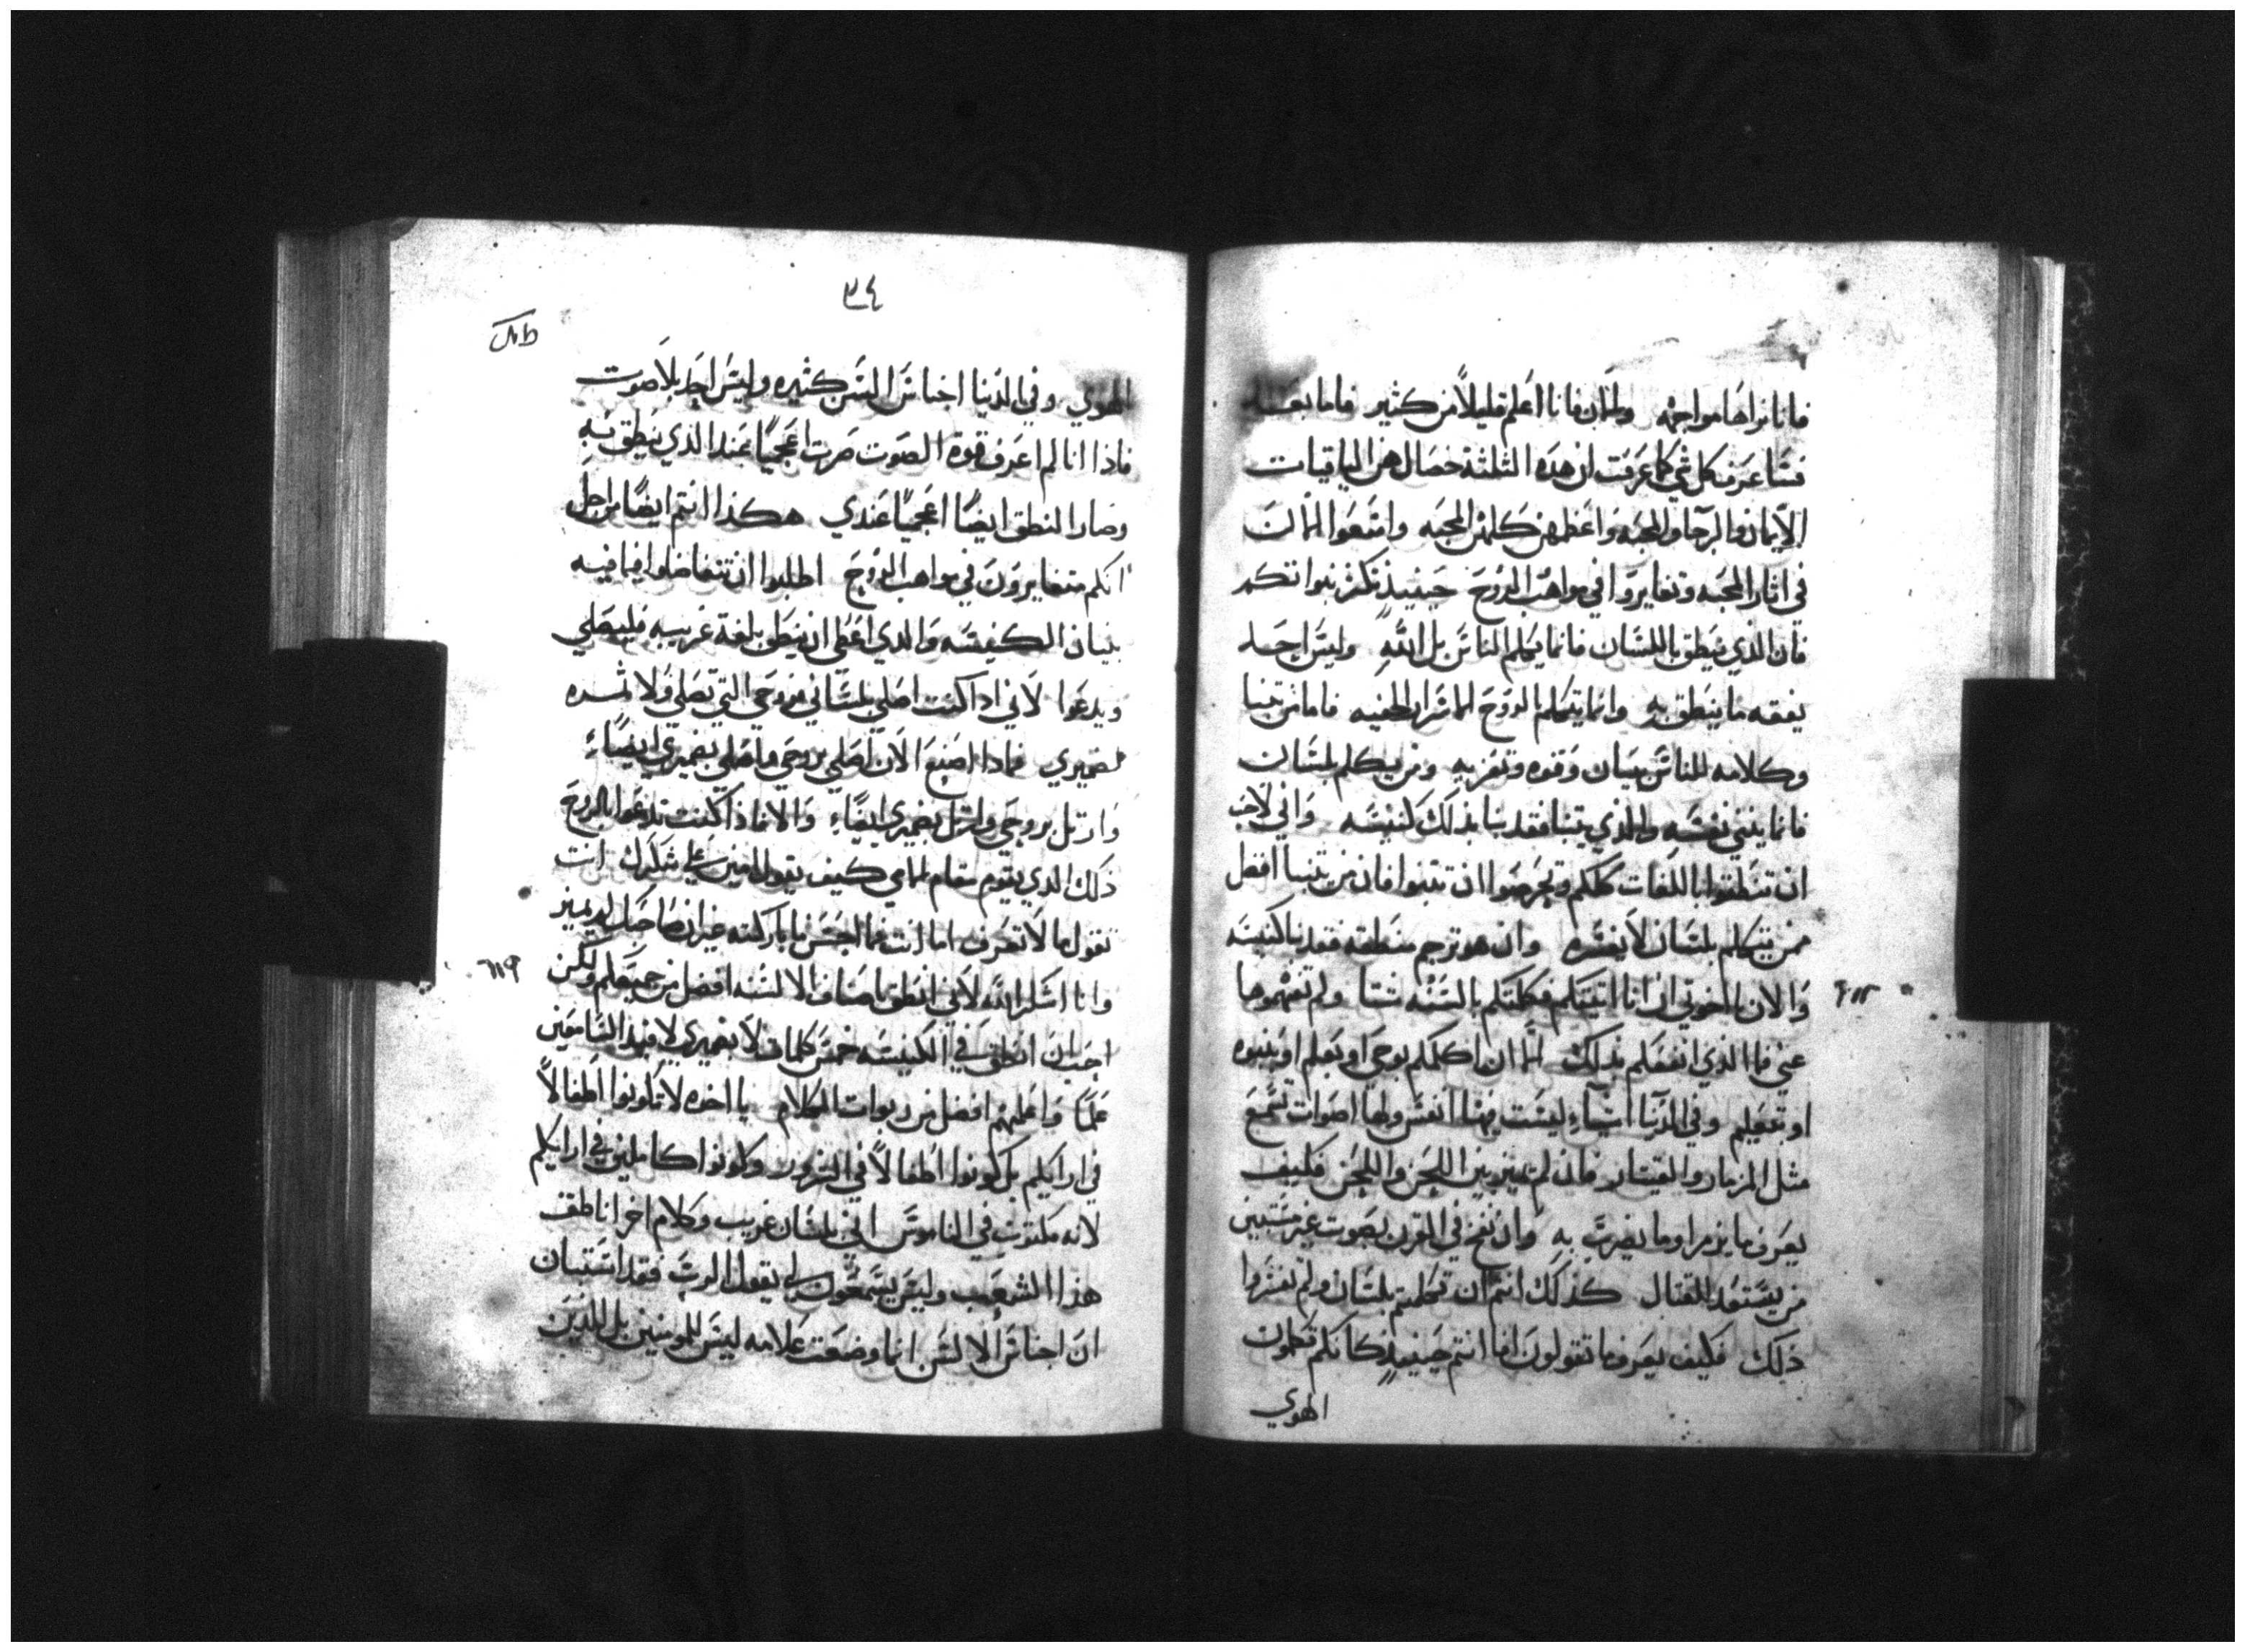 فانا نراها مواجهه والان فانا اعلم قليلاً من كثير فاما بعد
فسَاعرف كل شي كما عرفت ان هذه الثلثة خصال هن الباقيات
الايمان والرجا والمحبه واعظمهن كلهن المحبه واتبعوا
في اثار المحبه وتغايروا في مواهب الروح حينيذ
فان الذي ينطق باللسَان فانما يكلم الناسَ بل اللهِ وليسَ احد
يفقه ما ينطق بهِ وانما يتكلم بالروح السَراير الخفيه فاما من تنبا
وكلامه للناسَ بنيان وقوه وتعزيهِ ومن يتكلم بلسَان
فانما يبني نفسَه والذي يتنبا فقد بنا بذلك كنيسَه واني لاحب
ان تنطقوا باللغات كلكم وتحرصوا ان تتنبوا فان من يتنبا افضل
ممن يتكلم بلسَان لا يفسَره وان هو ترجم منطقه فقد بنا كنيسَه
والان يا اخوتي ان انا اتيتكم فكلمتكم بالسَنه شتا ولم تفهموها
عني فما الذي انفعكم بذلك الا ان اكلمكم بوحي او بعلم او بنبوه
او تعليم وفي الدنيا اشياءِ ليسَت فيها انفسَ ولها اصوات تسَمع
مثل المزمار والقيتار فان لم يميز بين اللحن واللحن فكيف
يعرف ما يزمر او ما يضرب بهِ وان نفخ في القرن بصوت غير مستبين
من يسَتعد للقتال كذلك انتم ان تكلمتم بلسَان ولم تفسَروا
ذلك فكيف يعرف ما تقولون انما انتم حينيذٍ كانكم تكلمون
الهوي
٣٤
الهوي وفي الدنيا اجناسَ السَن كثيره وليسَ احد بلا صوت
فاذا انا لم اعرف قوة الصوت صرت اعجمياً عند الذي ينطق بهِ
وصار النطق ايضاً اعجمياً عندي هكذا انتم ايضاً من اجل
انكم متغايرون في مواهب الروح اطلبوا ان تتفاضلوا فيما فيه
بنيان الكنيسَه والذي اعطي ان ينطق بلغة غريبه فليصلي
ويدعوا لاني اذا كنت اصلي بلسَاني فروحي التي تصلي ولا ثمره
لضميري فماذا اصنع الان اصلي بروحي واصلي بضميري ايضاً
وارتل بروحي وارتل بضميري ايضاً والا فاذا كنت تدعوا بالروح
ذلك الذي يقوم مقام العامي كيف يقول امين على شكرك انت
تقول ما لا تعرف اما انت فما احسَن ما باركته غير ان صاحبك لم يميز
وانا اشكر الله لاني انطق باصناف الالسَنه افضل من جميعكم ولكن
احب ان انطق في الكنيسَه خمسَ كلمات لا بضميري لافيد السَامعين
علماً واعلمهم افضل من ربوات الكلام يا اخوه لا تكونوا اطفالاً
في ارايكم بل كونوا اطفالاً في الشرور وكونوا كاملين في ارايكم
لانه مكتوب في الناموسَ اني بلسَان غريب وكلام اخر اناطق
هذا الشعب وليسَ يسَمعون لي يقول الرب فقد اسَتبان
ان اجناسَ الالسَن انما وضعت علامه ليسَ للمومنين بل للذين